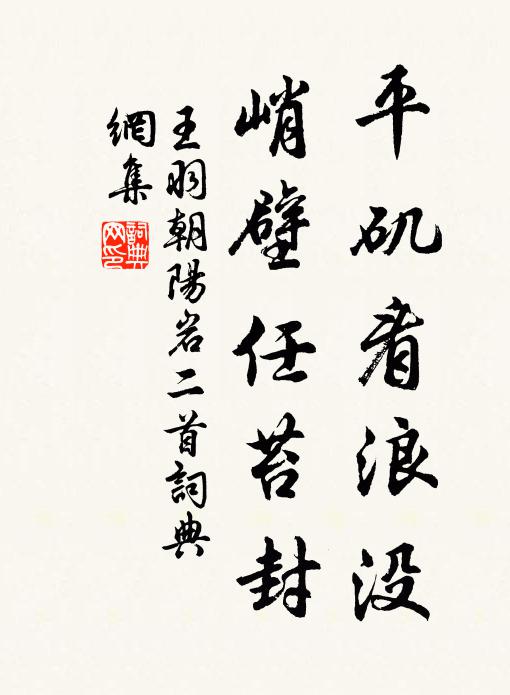 平矶看浪没
峭壁任苔封
王羽朝陽岩二首詞典
網集
詞典
网印